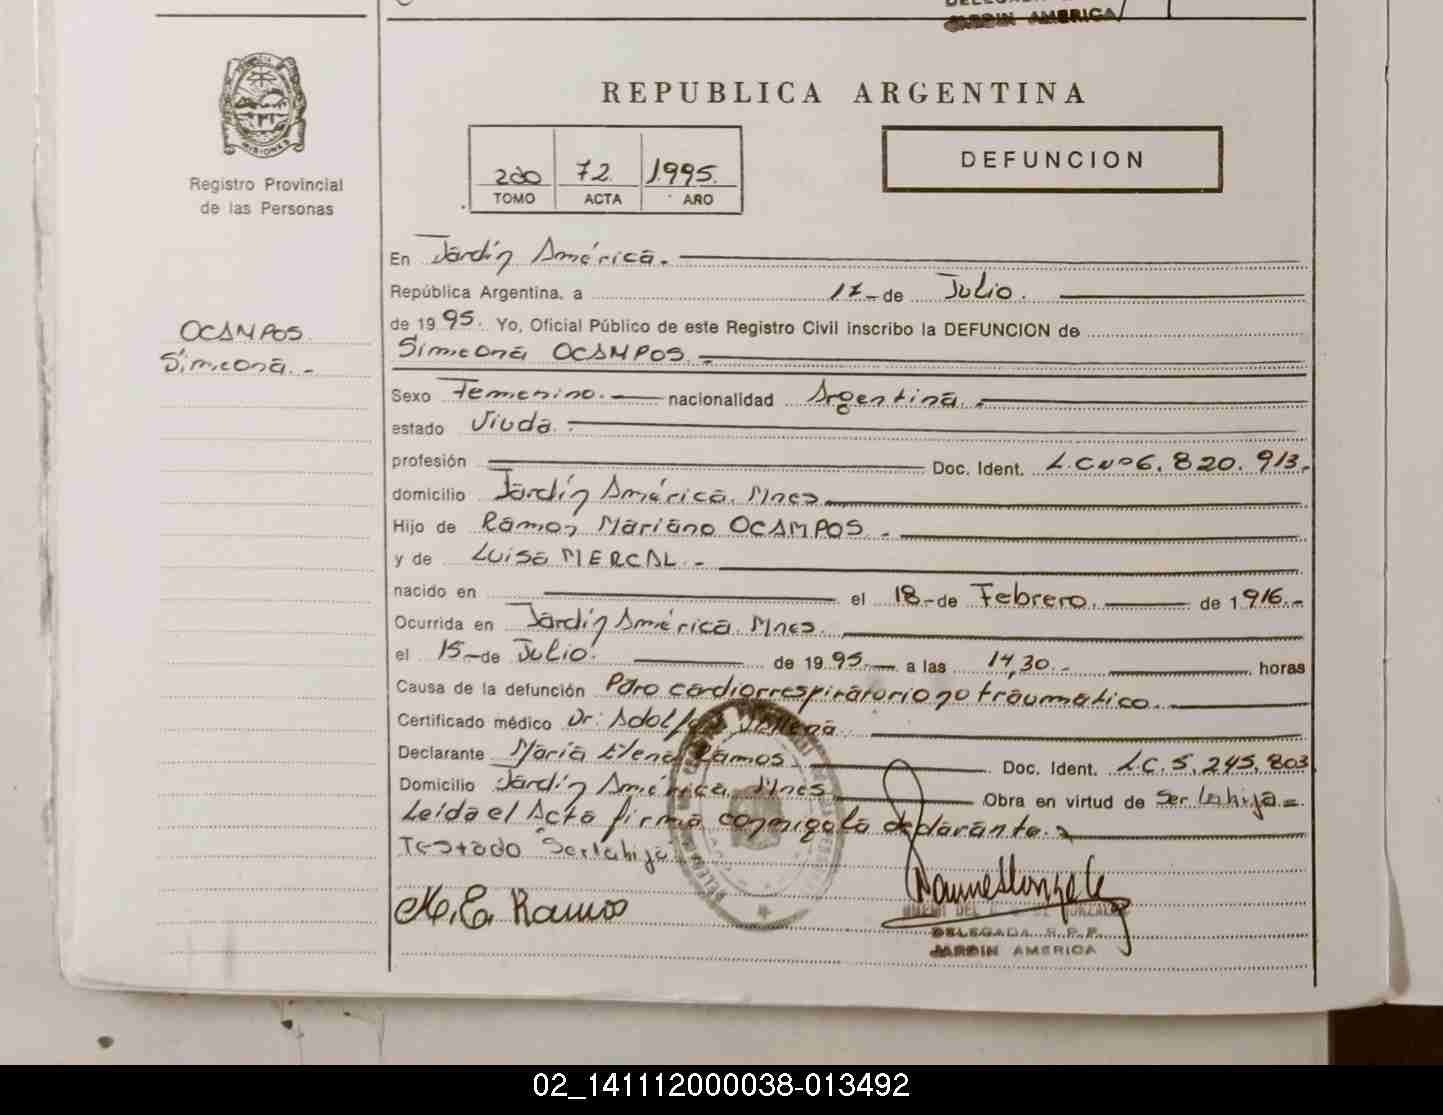 JARDIN AMERICA
REPUBLICA ARGENTINA
2do 72 1995.
TOMO ACTA AÑO
DEFUNCION
Registro Provincial
de las Personas
OCAMPOS
Simeona.-
En Jardín América.
República Argentina, a 17-de Julio.
de 1995. Yo, Oficial Público de este Registro Civil inscribo la DEFUNCION de
Simeona OCAMPOS.
Sexo Femenino. nacionalidad Argentina.
estado Viuda.
profesión Doc. Ident. L.C Nº 6.820.913.
domicilio Jardín América. Mnes
Hijo de Ramon Mariano OCAMPOS.
y de Luisa MERCAL.-
nacido en el 18-de Febrero de 1916.-
Ocurrida en Jardín América. Mnes.
el 15-de Julio. de 1995. a las 14,30.- horas
Causa de la defunción Paro cardiorrespiratorio no traumatico.
Certificado médico Dr. Adolfo
Declarante Maria Elena Ramos. Doc. Ident. L.C. 5.245.803
Domicilio Jardín América, Mnes Obra en virtud de Ser la hija.
Leida el Acta firma conmigo la declarante.
Testado "Ser la hija"
M. E. Ramos
DELEGADA R.P.P.
JARDIN AMERICA
02_141112000038-013492